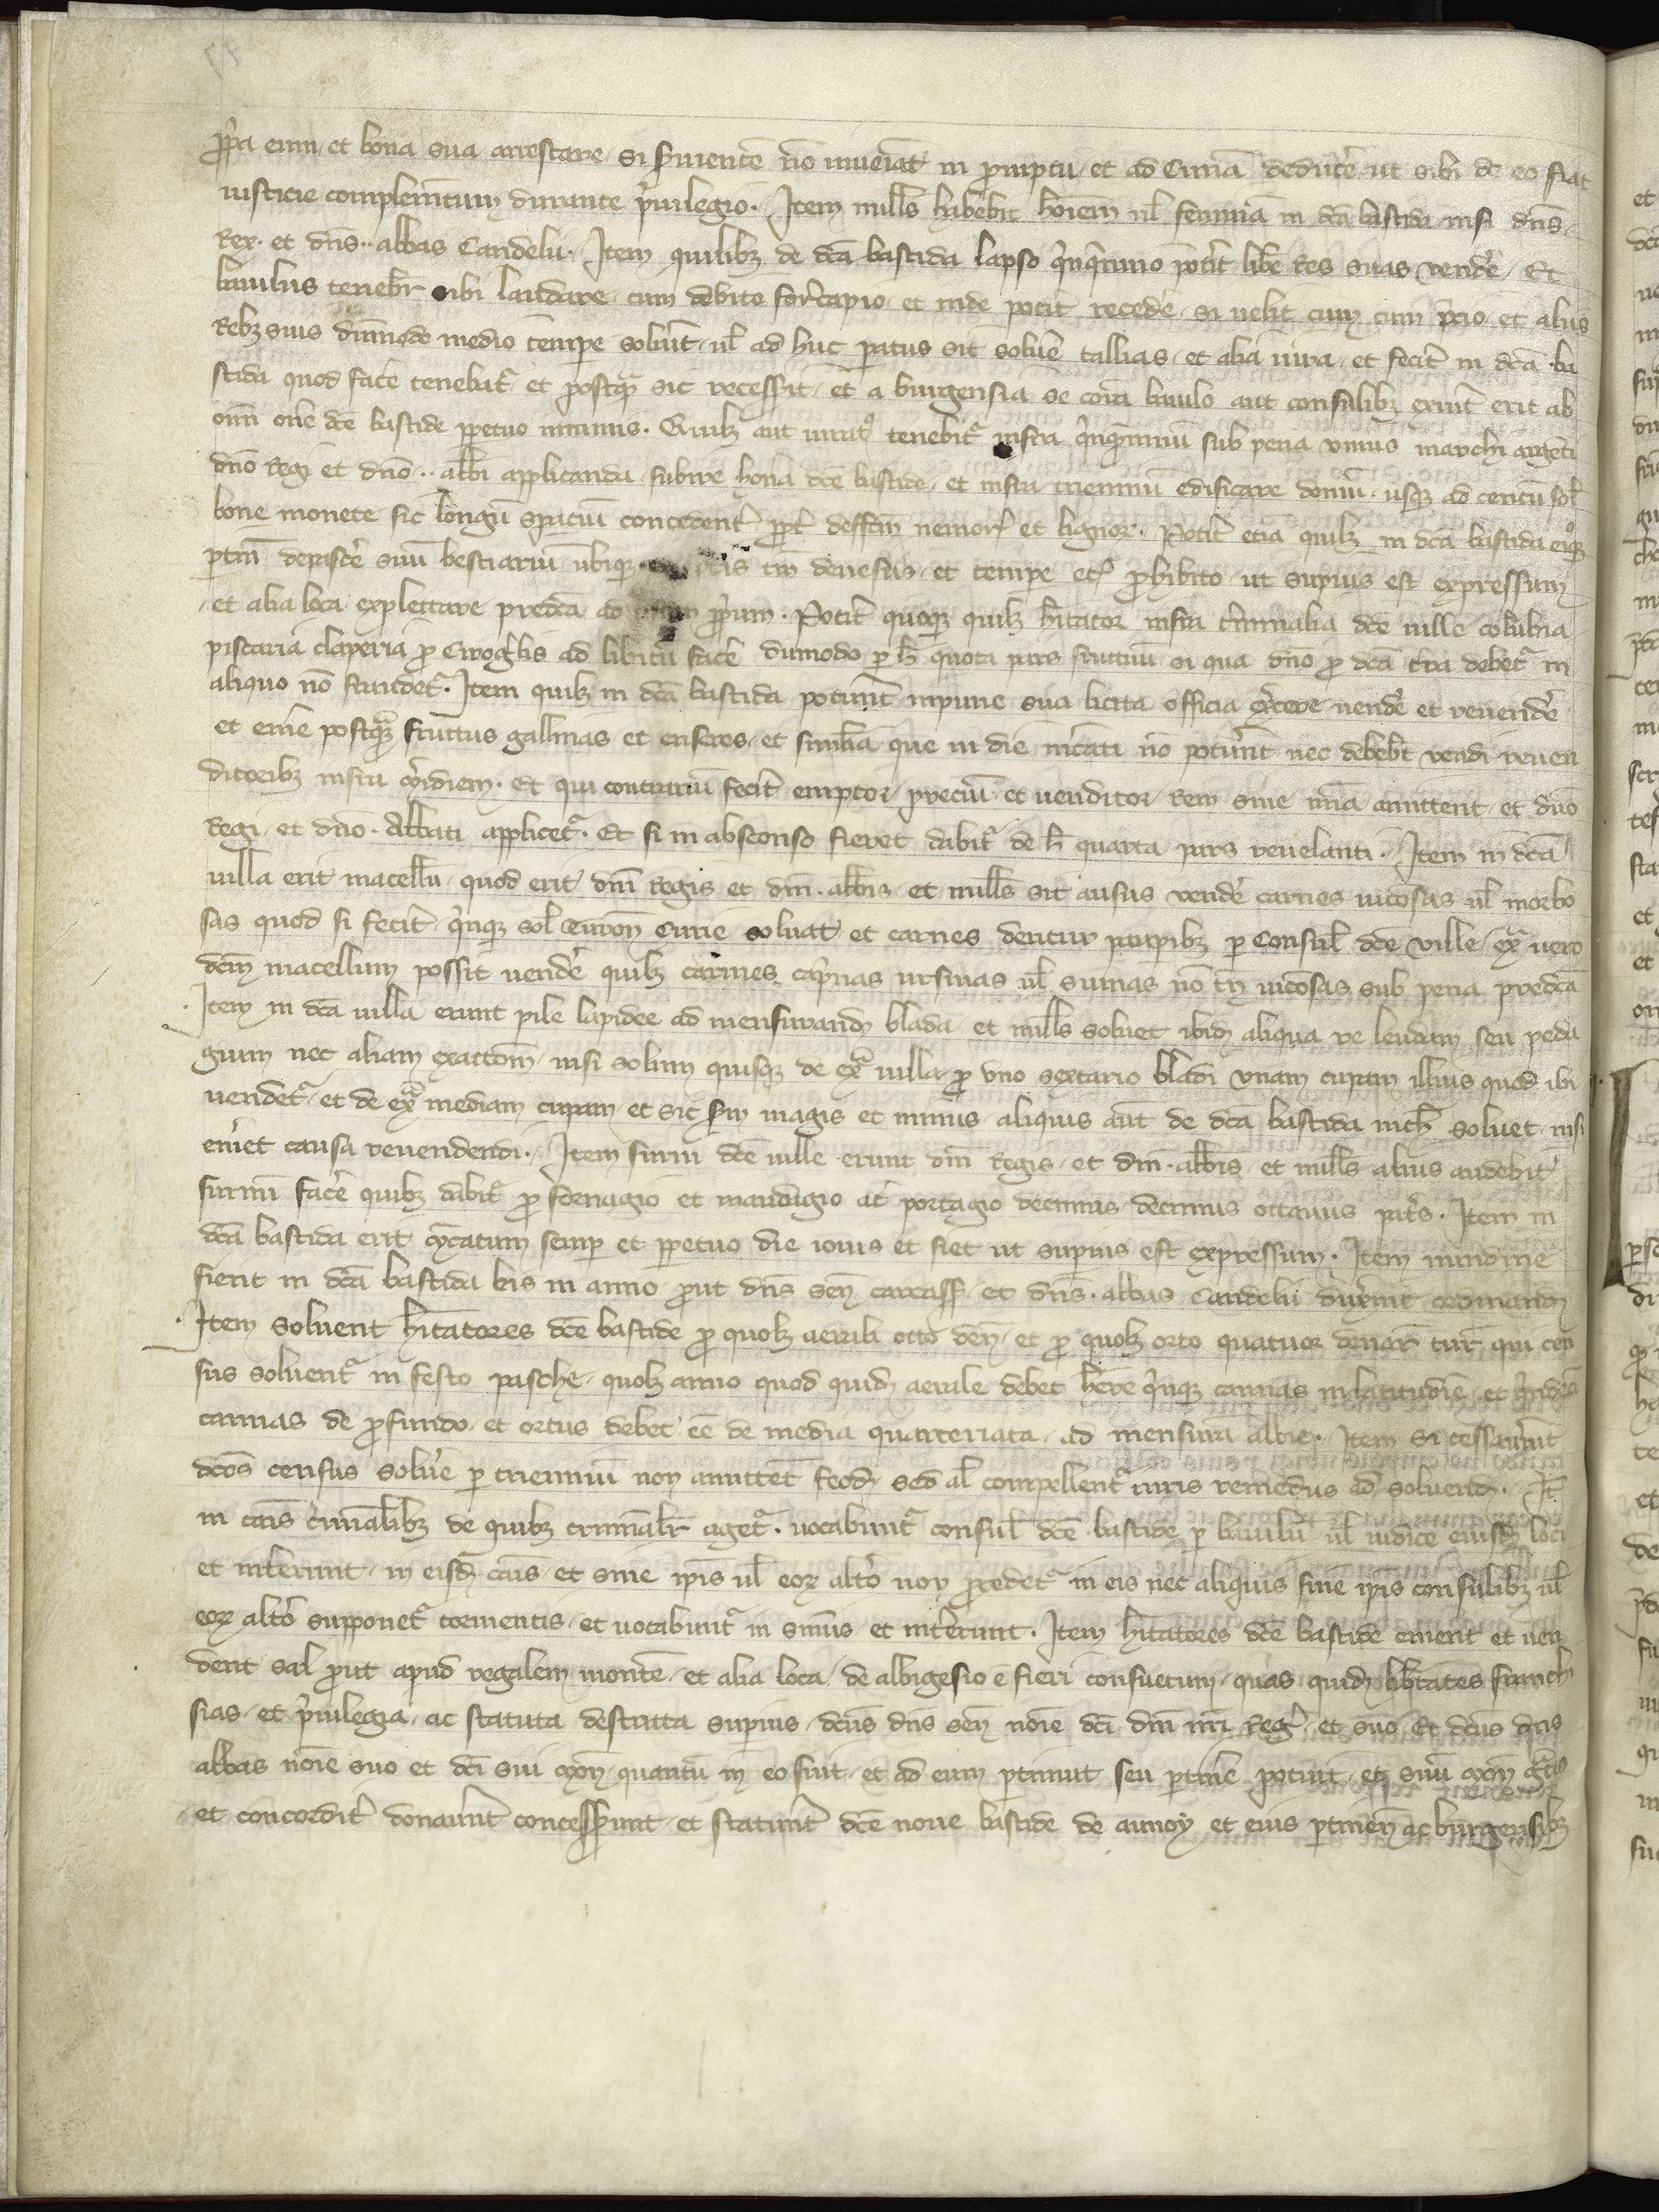 ppria eum et bona sua arrestare si seruientē nō inueniat in promptu et ad Curiā deducere ut sibi de eo fiat
iusticie complemētum durante priuilegio. Item nullus habebit hoīem uel feminā in dcā bastida nisi dns
Rex et dns .. abbas Candelii. Item quilibet de dcā bastida lapso quinquennio poterit libere Res suas vendere. Et
baiulus tenebitur sibi laudare cum debito forcapio et inde poterit recedere si uelit cum cum precio et aliis
Rebus suis dummodo medio tempore soluerit uel ad huc paratus sit soluere tallias et alia iura et fecerit in dcā ba
stida quod facere tenebatur et postquam sic recesserit et a burgensia se coram baiulo aut consulibus exierit erit ab
omni onere dce bastide perpetuo immunis. Quilibet aut iuratus tenebitur infra quinquennium sub pena vnius marchi argenti
dno Regi et dno .. abbi applicanda subire honera dce bastide et infra triennium edificare domum usque ad centum sol
bone monete sic longum spacium conceditur propter deffectum nemorum et lignorum. Poterit etiā quilibet in dcā bastida eiusque
pertinen depascere suum bestiarium ubique tm deuesiis et tempore etc prohibito ut superius est expressum
et alia loca explectare predcā ad proprium. Poterit quoque quilibet hitator infra terminalia dce uille columbria
piscaria claperia pro cirogrillis ad libitum facere dummodo per hoc quota pars fructuum si qua dno pro dcā terra debetur in
aliquo nō fraudetur. Item quilibet in dcā bastida poterunt impune sua licita officia exercere uendere et reuendere
et emere postquam fructus gallinas et anseres et similia que in die mercati nō poterunt nec debebunt vendi reuen
ditoribus infra meridiem. Et qui contrarium fecerit emptor precium et uenditor Rem sine mīa amittent et dno
Regi et dno. Abbati applicetur. Et si in absconso fieret dabitur de hoc quarta pars reuelanti. Item in dcā
uilla erit macellum quod erit dni Regis et dni. abbis et nullus sit ausus vendere carnes uiciosas uel morbo
sas quod si fecerit quinque sol turon Curie soluat et carnes dentur pauperibus per Consul dce ville extra uero
dcm macellum possit uendere quilibet carnes caprinas ursinas uel suinas nō tn uiciosas sub pena predcā
Item in dcā uilla erunt pile lapidee ad mensurandum blada et nullus soluet ibidem aliqua re leudam seu peda
gium nec aliam exactōem nisi solum quisque de extra uilla pro vno sextario bladi vnam cupam illius quod ibi
uendetur et de extra mediam cupam et sic sm magis et minus aliquis aut de dcā bastida nich soluet nisi
emeret causa reuendendi. Item furni dce uille erunt dni Regis et dni. abbis et nullus alius audebit
furnum facere quibus dabitur pro fornagio et mandagio ac portagio decimus decimus octauus panis. Item in
dcā bastida erit mercatum semper et perpetuo die iouis et fiet ut superius est expressum. Item nundine
fient in dcā bastida bis in anno prout dns sen carcass et dns. abbas Candelii duxerint ordinandum
Item soluent hitatores dce bastide pro quolibet aerali octo den et pro quolibet orto quatuor denar tur qui cen
sus soluentur in festo pasche quolibet anno quod quidem aerale debet here quinque cannas in latitudine et quindecim
cannas de profundo et ortus debet eē de media quarteriata ad mensuram albie. Item si cessauerint
dcos census soluere per triennium non amittent feodum sed al compellentur iuris remediis ad soluendum. It
in causis criminalibus de quibus criminaliter agetur. uocabuntur consul dce bastide per baiulum uel iudicē eiusdem loci
et intererunt in eisdem causis et sine ipsis uel eorum altero non procedetur in eis nec aliquis sine ipsis consulibus uel
eorum altero supponetur tormentis et uocabuntur in summis et intererunt. Item hitatores dce bastide ement et uen
dent sal prout apud regalem montē et alia loca de albigesio ē fieri consuetum quas quidem libertates franch
sias et priuilegia ac statuta descripta superius dcus dns sen noīe dci dni nri Regis et suo. Et dcus dns
abbas noīe suo et dci sui mon quantum in eo fuit et ad eum pertinuit seu pertinere potuit et suum mon gratis
et concorditer donauerunt concesserunt et statuerunt dce noue bastide de aunoy et eius pertinen ac burgensibus